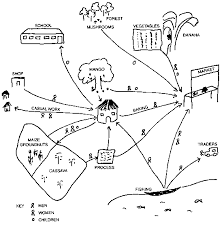 FOREST
MUSHROOMS
VEGETABLES
BANANA
SCHOOL
MANGO
MARKET
SHOP
CASUAL WORK
BAKING
MAIZE
GROUNDNUTS
CASSAVA
PROCESS
TRADERS
FISHING
KEY
MEN
WOMEN
CHILDREN